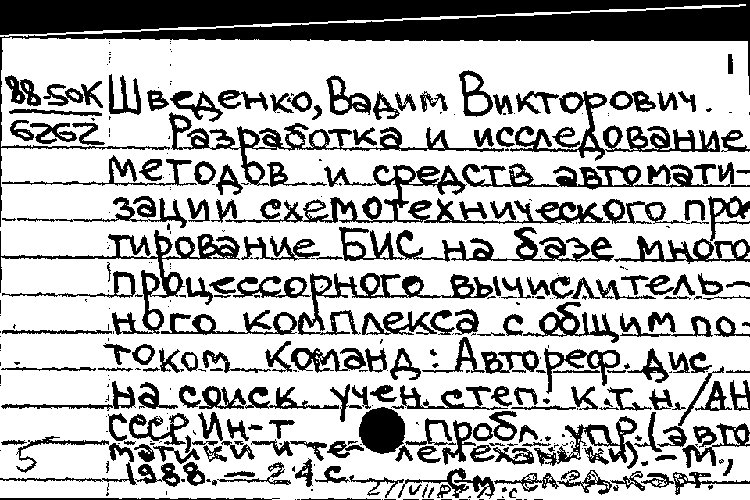 1
88-50К Шведенко, Вадим Викторович.
6262 Разработка и исследование
методов и средств автомати-
зации схемотехнического прое
тирование БИС на базе много
процессорного вычислитель-
ного комплекса с общим по-
током команд: Автореф. дис.
на соиск. учен. степ. к.т.н. /АН
СССР, Ин-т пробл. упр. (авто
матики и телемеханики). – М.,
5 1988. – 24 с. См. след. карт.